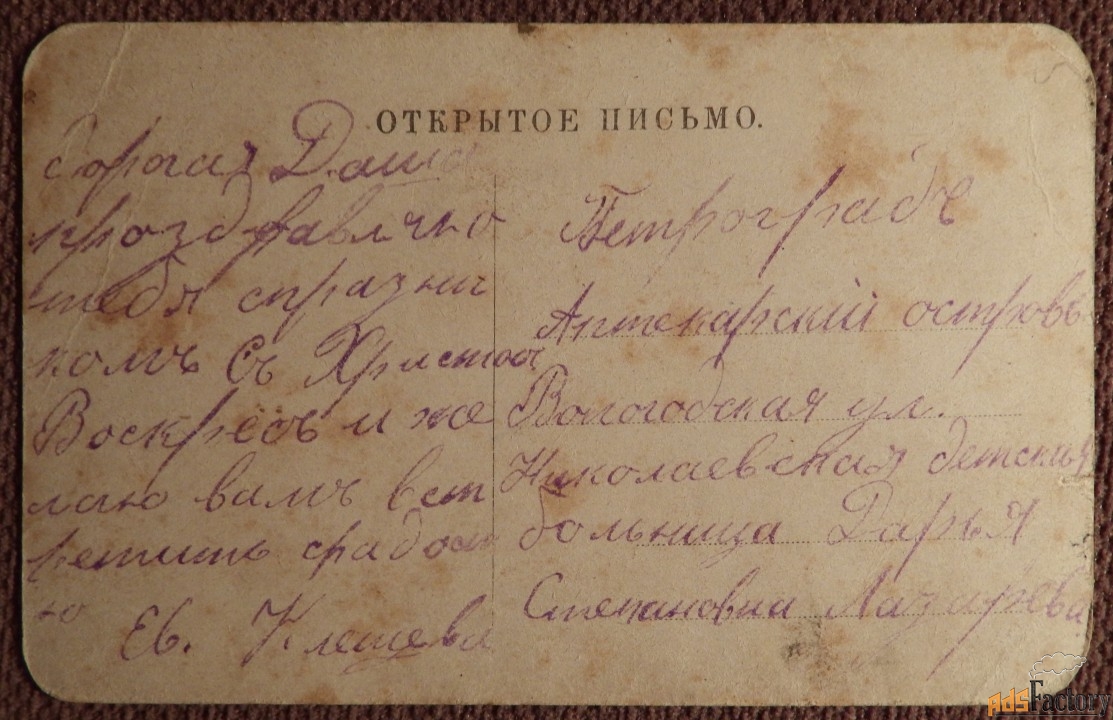 ОТКРЫТОЕ ПИСЬМО.
дорогая Даша
проздравляю
тебя спразни
комъ Съ Христос
Воскресъ и же
лаю вамъ вст
ретить срадост
ю
Ев. Клещева
Петроградъ
Аптекарский островъ
Вологодская ул.
Николаевская детская
больница Дарья
Степановна Лазарева
AdsFactory